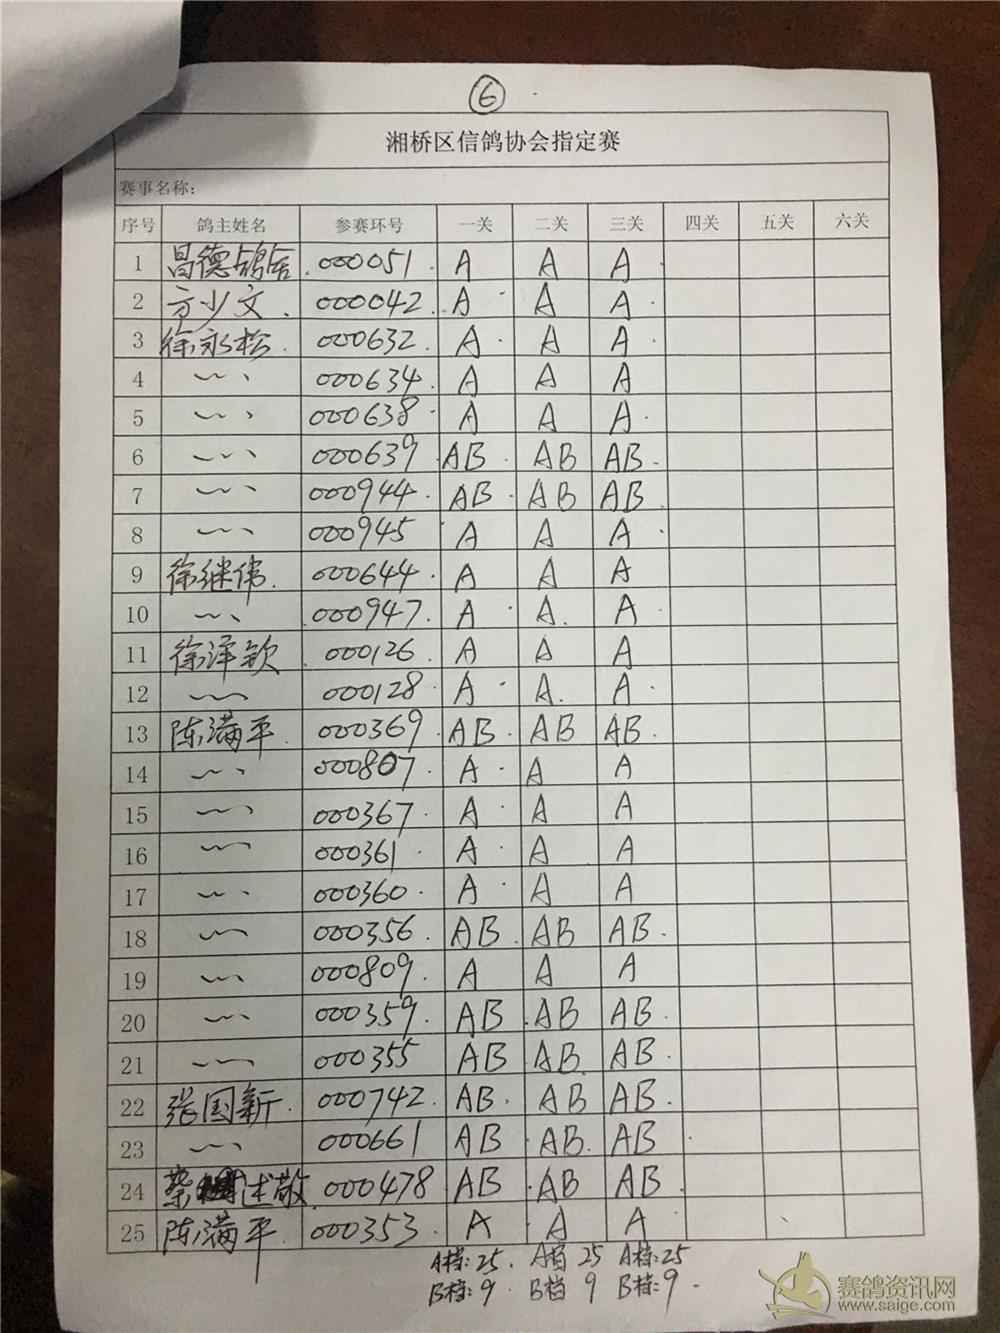 ⑥
湘桥区信鸽协会指定赛
赛事名称:
序号 鸽主姓名 参赛环号 一关 二关 三关 四关 五关 六关
1 昌德鸽舍 000051 A A A
2 方少文 000042 A A A
3 徐永松 000632 A A A
4 000634 A A A
5 000638 A A A
6 000639 AB AB AB
7 000944 AB AB AB
8 000945 A A A
9 徐继伟 000644 A A A
10 000947 A A A
11 徐泽钦 000126 A A A
12 000128 A A A
13 陈满平 000369 AB AB AB
14 000807 A A A
15 000367 A A A
16 000361 A A A
17 000360 A A A
18 000356 AB AB AB
19 000809 A A A
20 000359 AB AB AB
21 000355 AB AB AB
22 张国新 000742 AB AB AB
23 000661 AB AB AB
24 蔡述敬 000478 AB AB AB
25 陈满平 000353 A A A
A档:25. A档 25 A档:25
B档:9 B档 9 B档:9.
赛鸽资讯网
www.saige.com